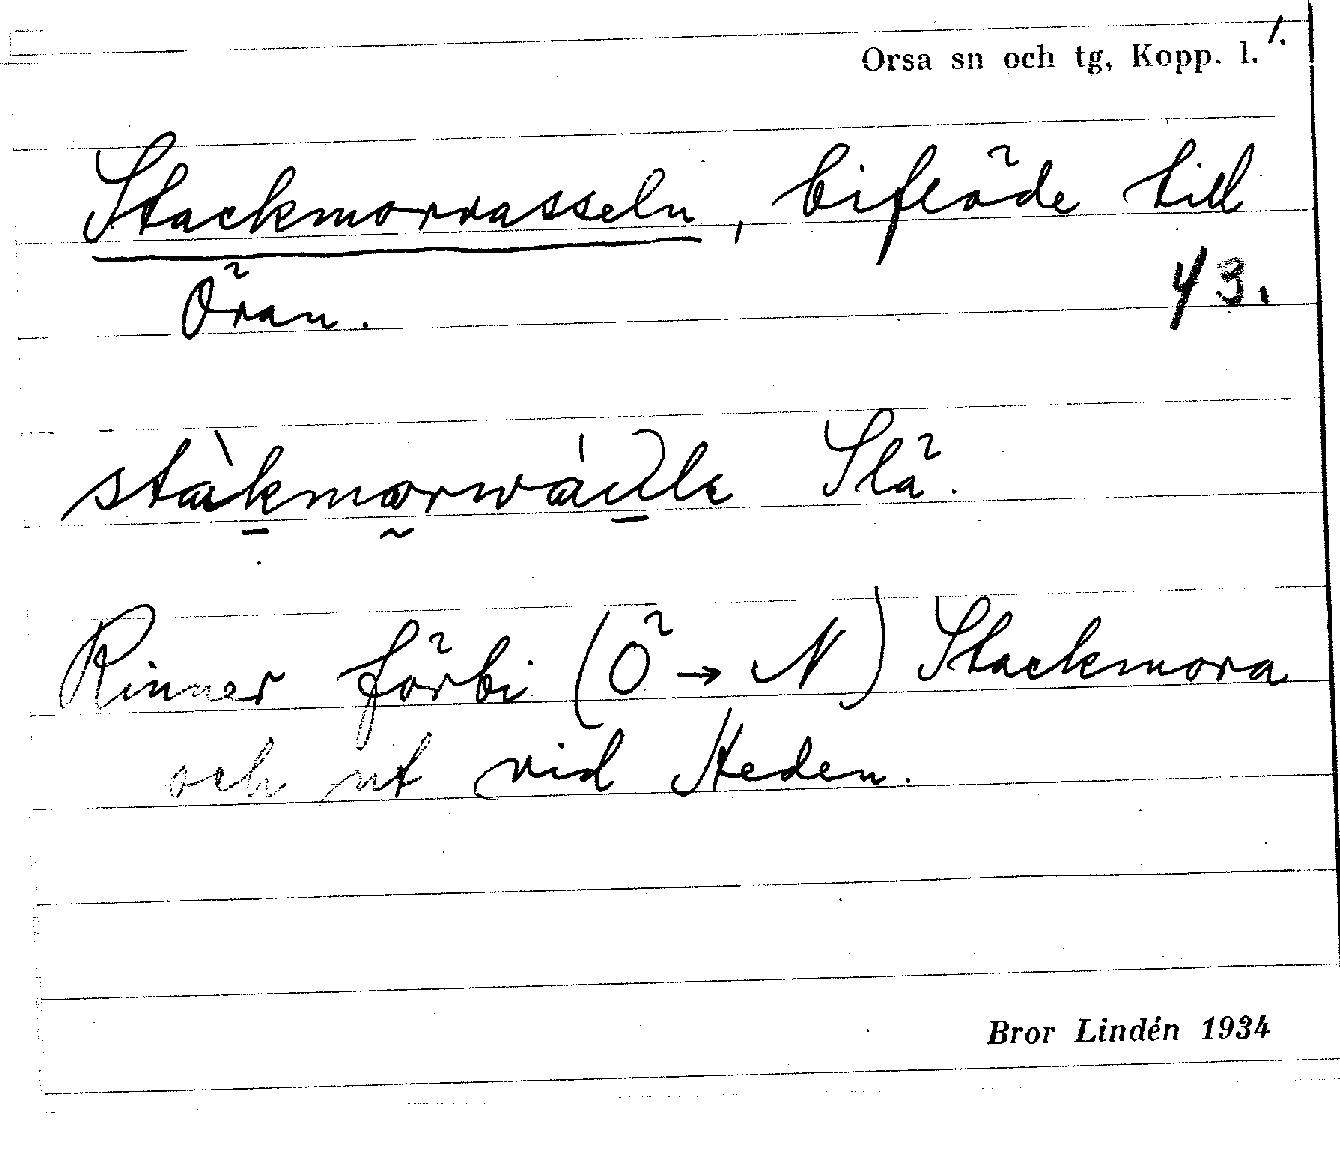 Orsa sn och tg, Kopp. l. 1.
Stackmorvasseln, biflöde till
Öran. 43.
Slä.
Rinner förbi (Ö → N) Stackmora
och ut vid Heden.
Bror Lindén 1934